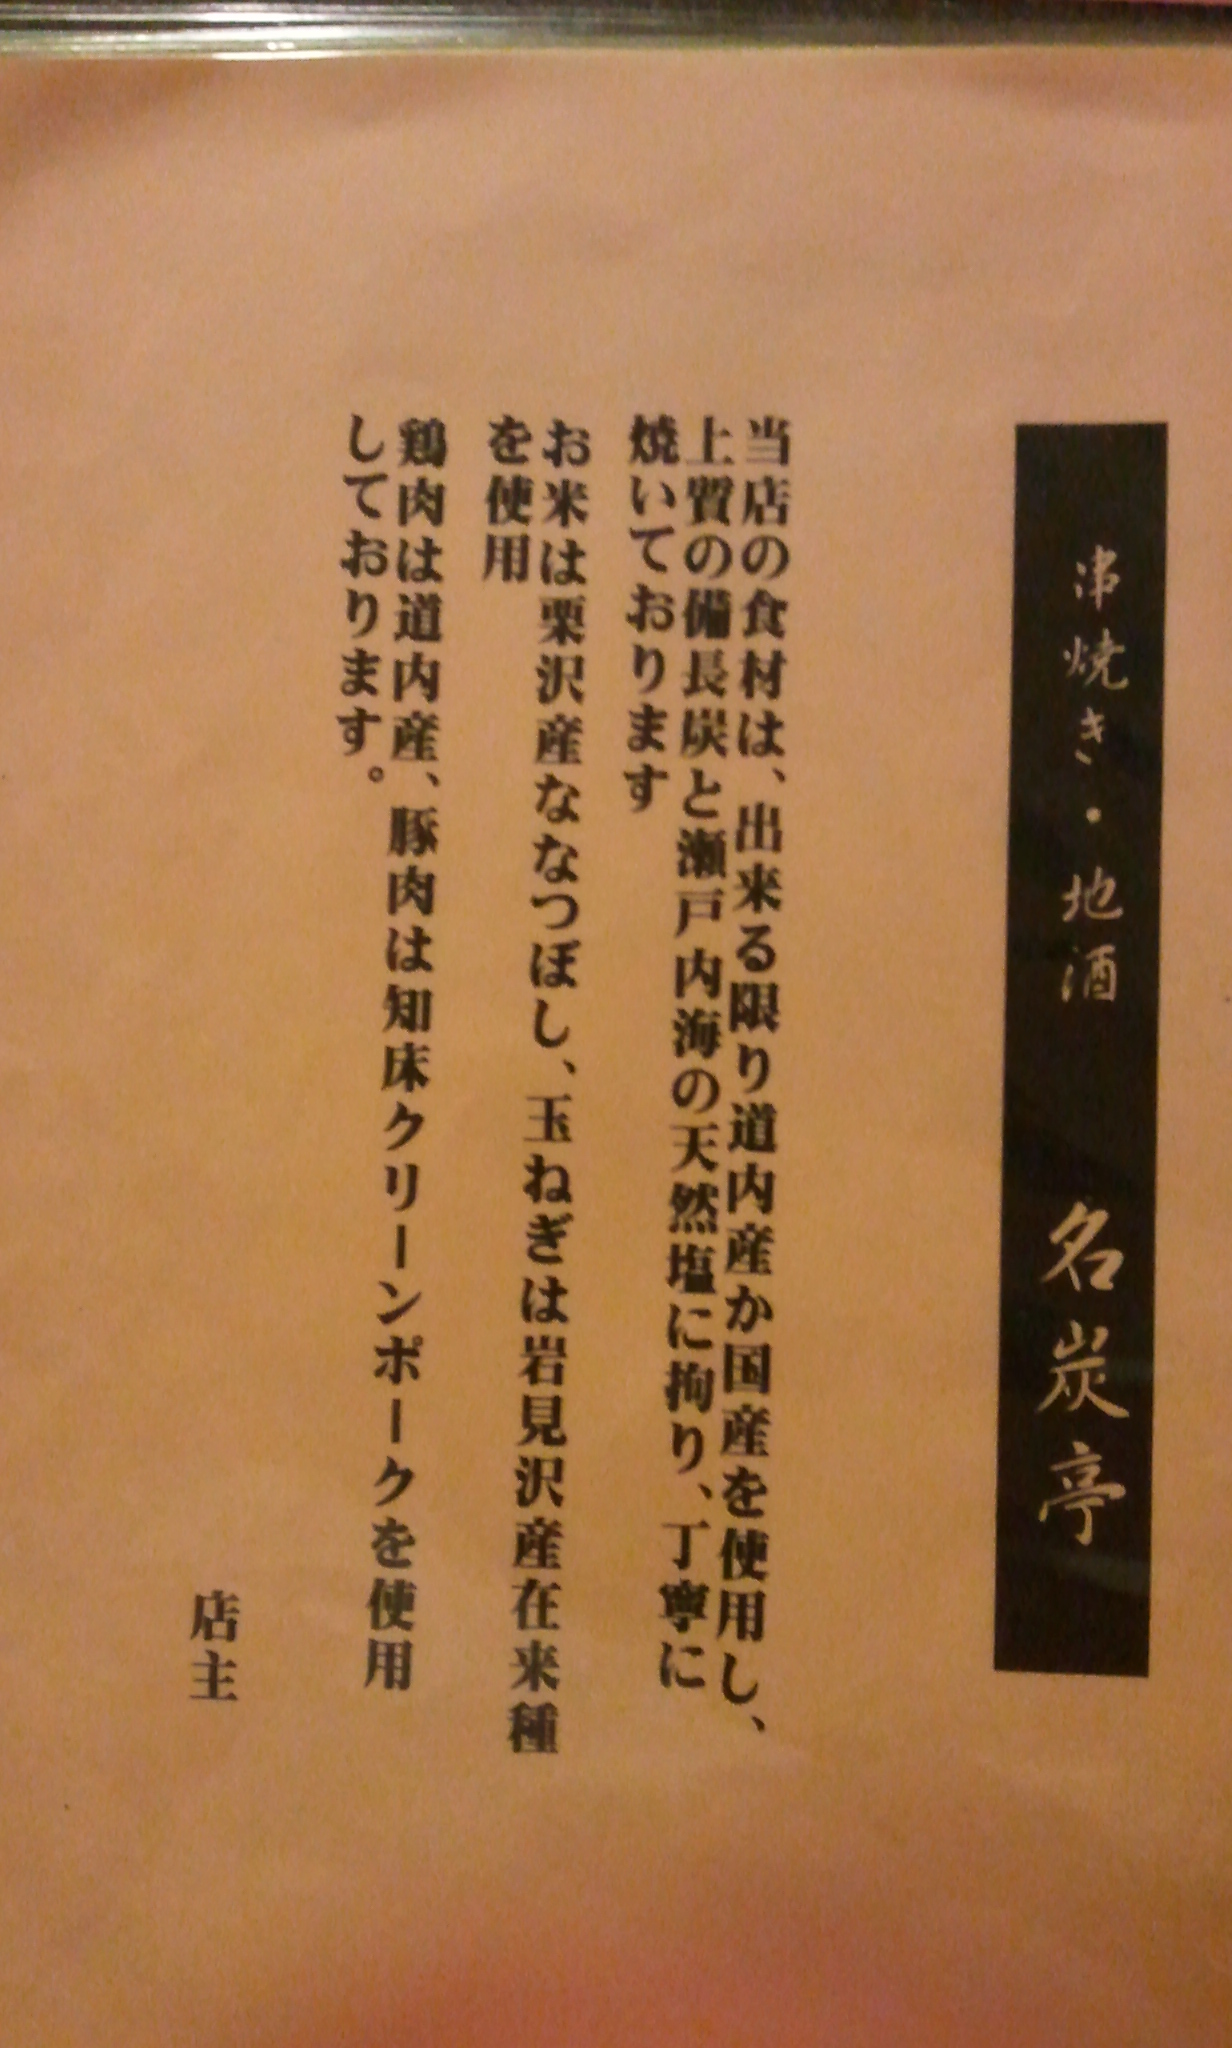 串焼き・地酒 名炭亭
当店の食材は、出来る限り道内産か国産を使用し、
上質の備長炭と瀬戸内海の天然塩に拘り、丁寧に
焼いております
お米は栗沢産ななつぼし、玉ねぎは岩見沢産在来種
を使用
鶏肉は道内産、豚肉は知床クリーンポークを使用
しております。
店主